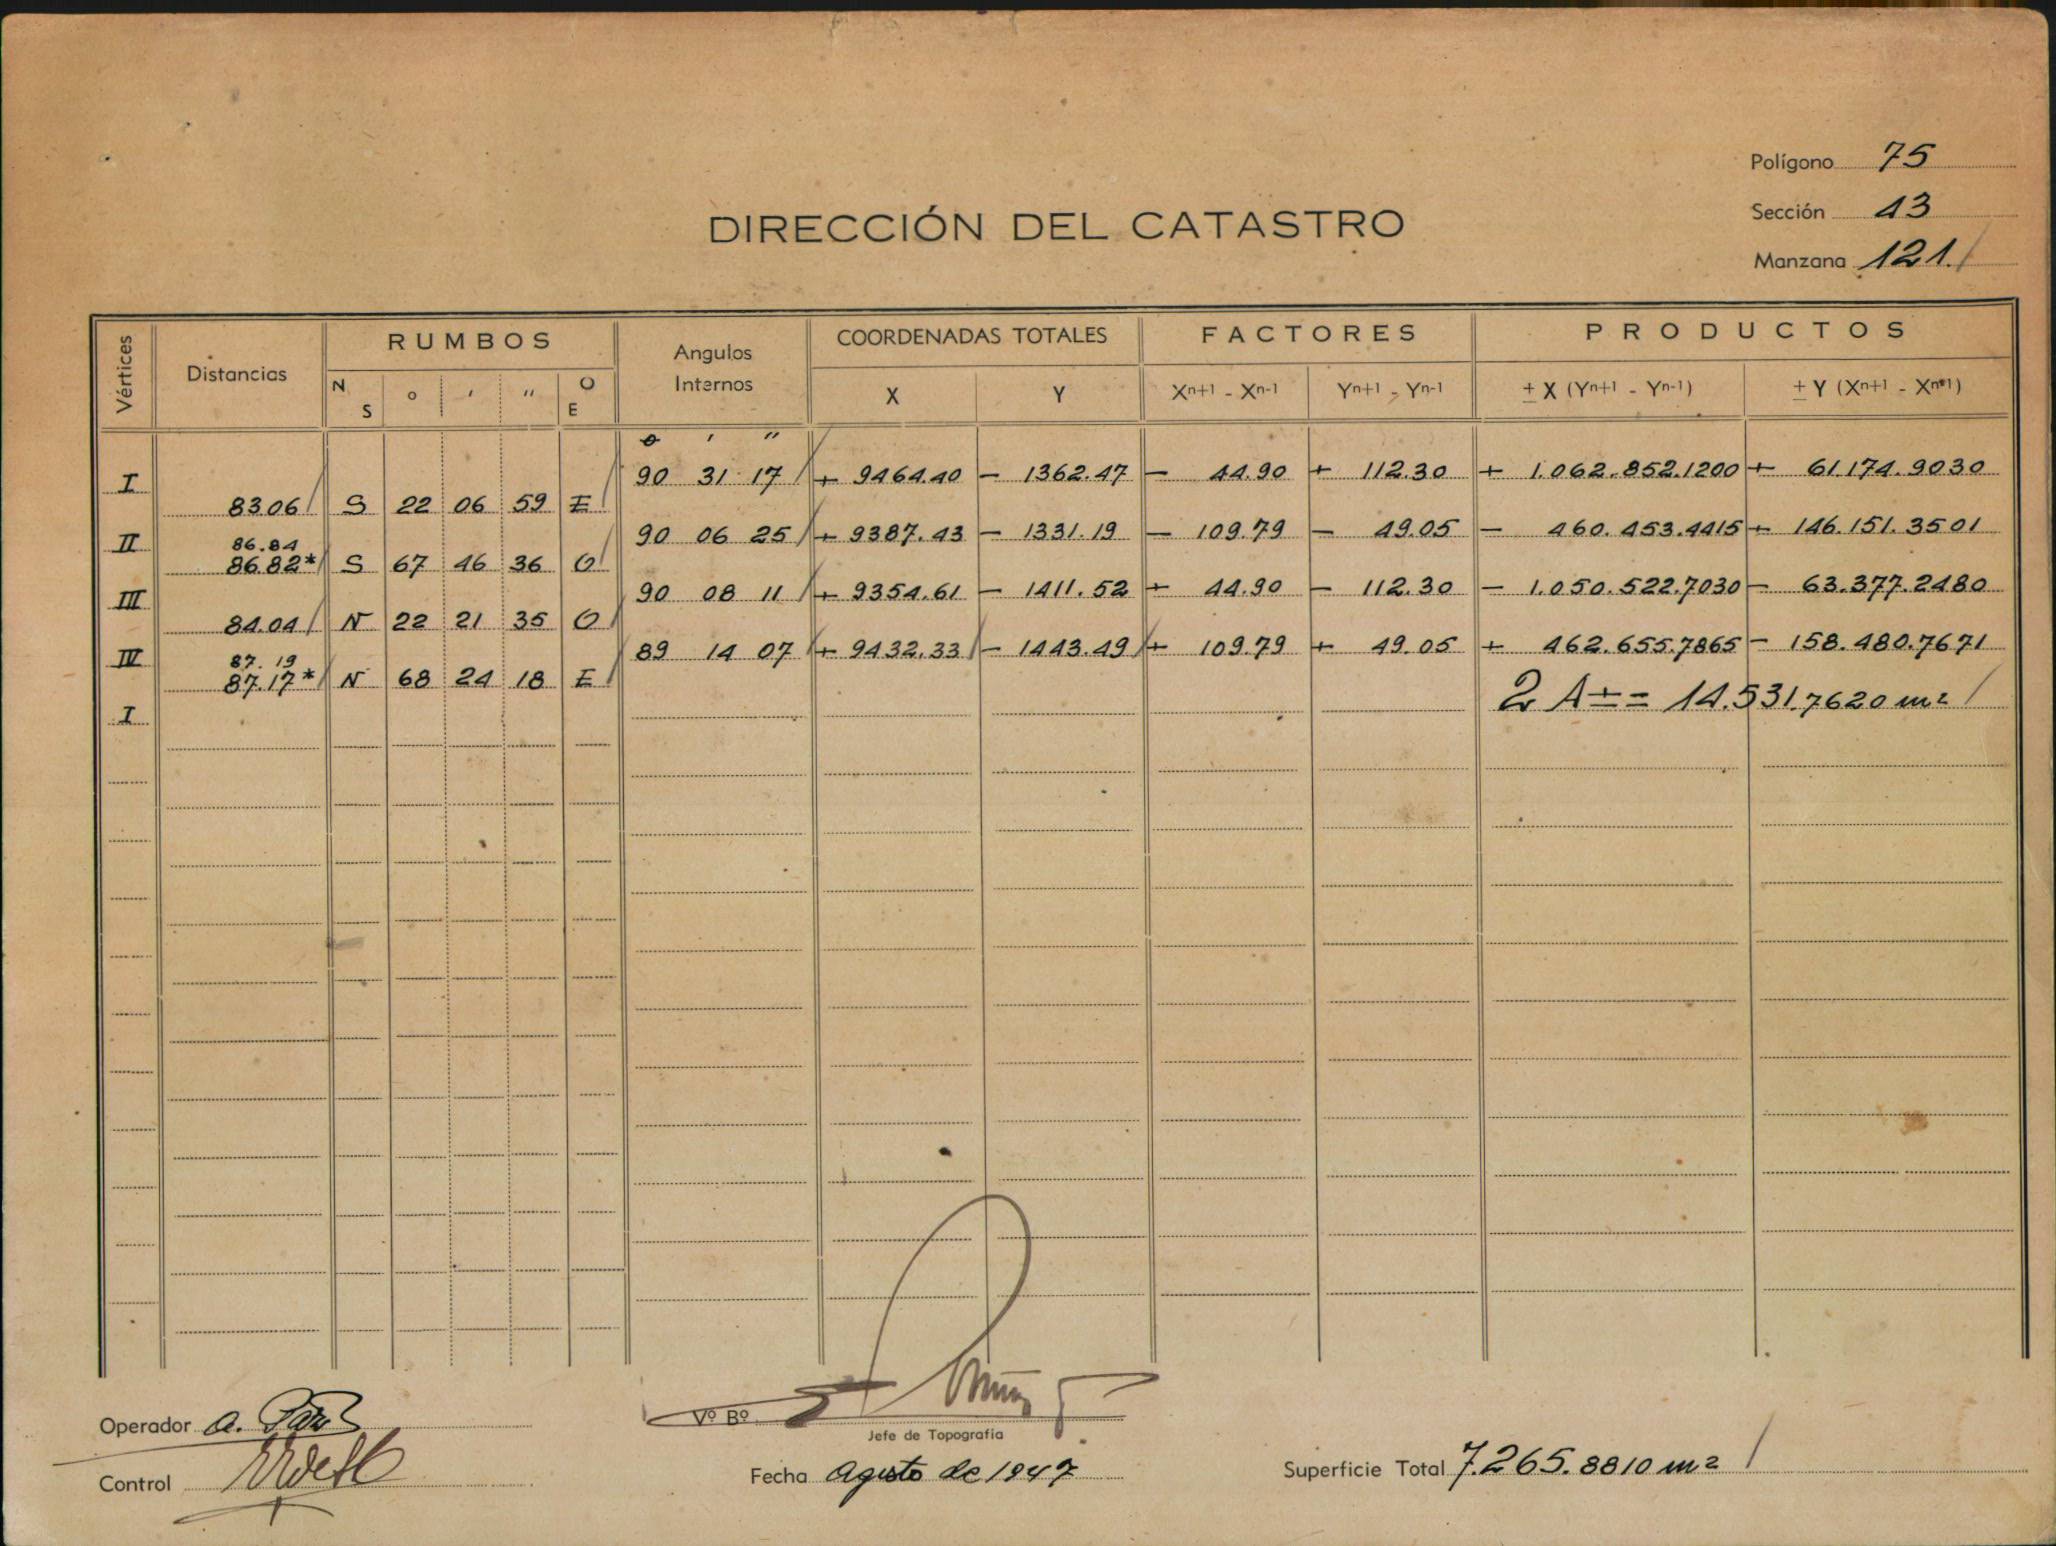 Polígono 75
Sección 13
DIRECCIÓN DEL CATASTRO
Manzana 121.
Vértices Distancias RUMBOS Angulos Internos COORDENADAS TOTALES FACTORES PRODUCTOS
N S ° ' " O E X Y Xn+1 - Xn-1 Yn+1 - Yn-1 ± X (Yn+1 - Yn-1) ± Y (Xn+1 - Xn-1)
° ' "
I 90 31 17 + 9464.40 - 1362.47 - 44.90 + 112.30 + 1.062.852.1200 + 61.174.9030
83.06 S 22 06 59 E
II 90 06 25 + 9387.43 - 1331.19 - 109.79 - 49.05 - 460.453.4415 + 146.151.3501
86.84
86.82* S 67 46 36 O
III 90 08 11 + 9354.61 - 1411.52 + 44.90 - 112.30 - 1.050.522.7030 - 63.377.2480
84.04 N 22 21 35 O
IV 89 14 07 + 9432.33 - 1443.49 + 109.79 + 49.05 + 462.655.7865 - 158.480.7671
87.19
87.17* N 68 24 18 E
I 2 A ± = 14.531.7620 m2
Operador A.
Vº Bº
Jefe de Topografía
Control
Fecha Agosto de 1947
Superficie Total 7.265.8810 m2